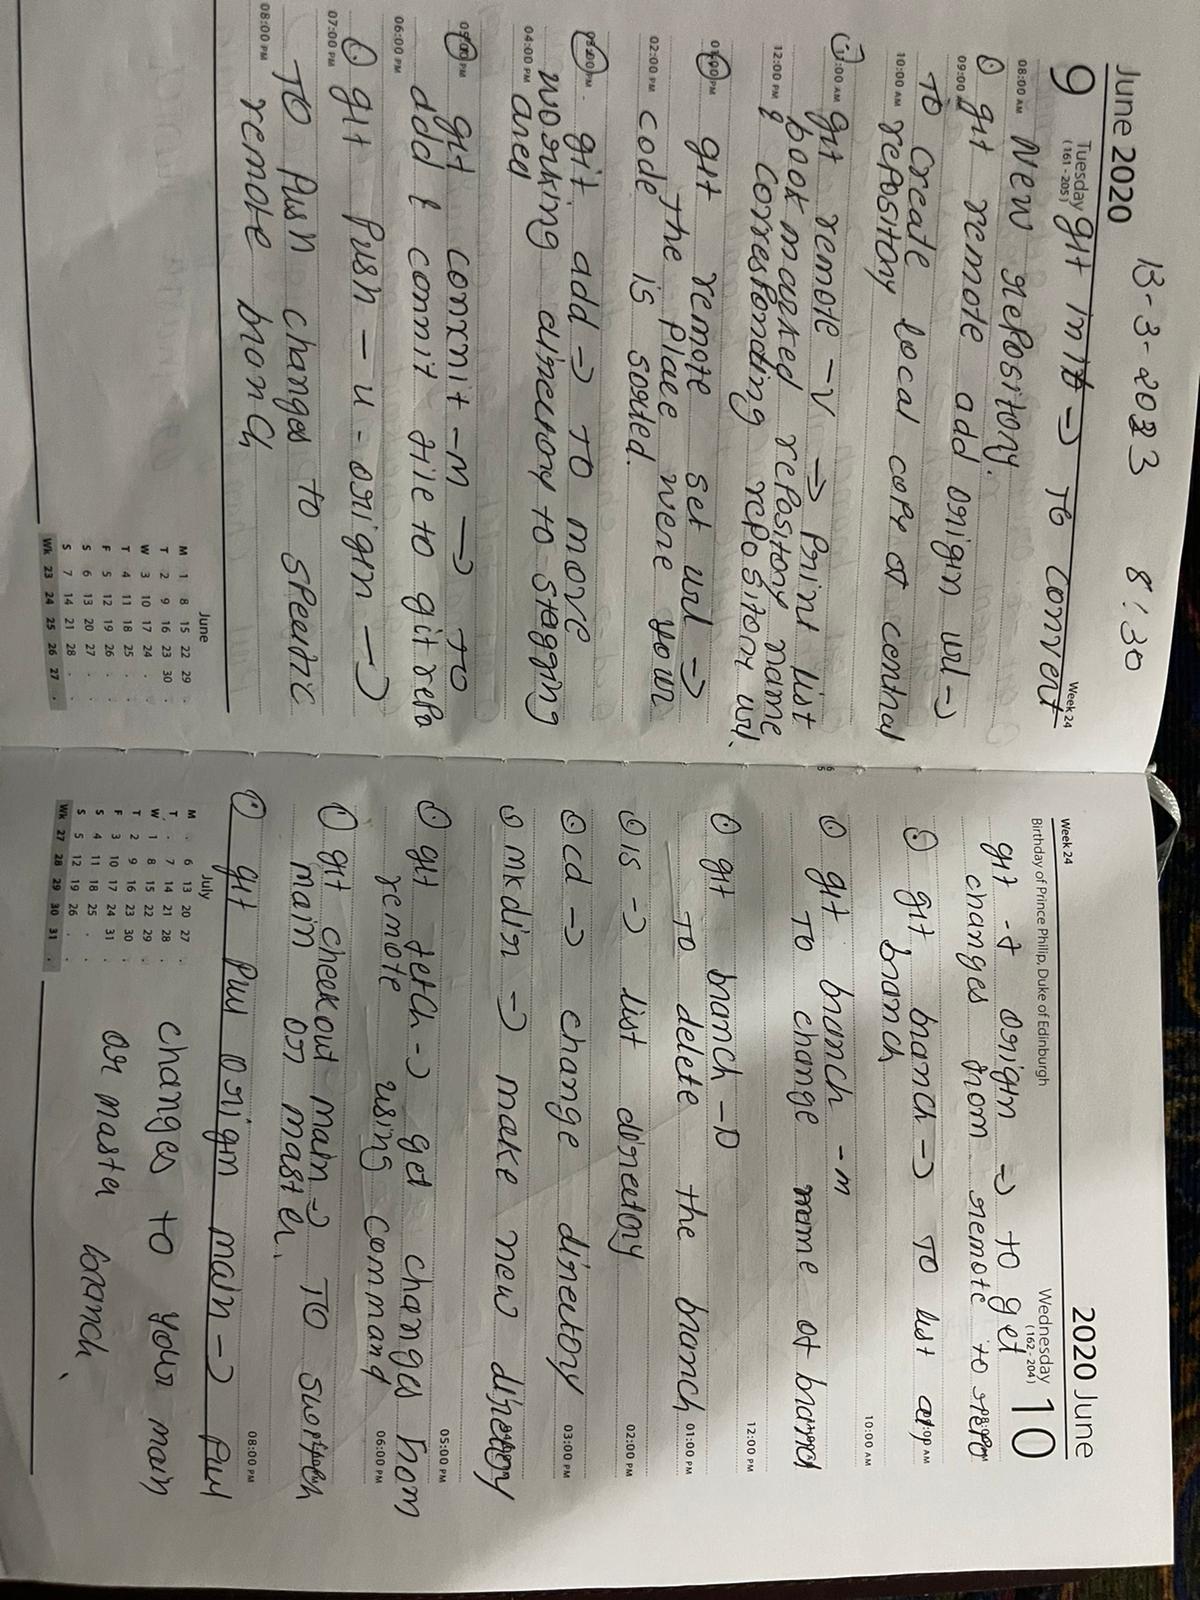 13-3-2023 8:30
June 2020
9 Tuesday git init → To convert
(161 - 205)
Week 24
08:00 AM New repository.
git remote add origin url →
09:00 AM
To create local copy of central
10:00 AM repository
git remote -v → Print list
bookmarked repository name
12:00 PM & corresponding repository url.
git remote set url →
The place were your
02:00 PM code is sorted.
git add → To move
working directory to stagging
04:00 PM area
git commit -m → To
add & commit file to git repo
06:00 PM
git Push -u - origin →
07:00 PM
To Push changes to specific
08:00 PM remote branch
June
M 1 8 15 22 29 .
T 2 9 16 23 30 .
W 3 10 17 24 . .
T 4 11 18 25 . .
F 5 12 19 26 . .
S 6 13 20 27 . .
S 7 14 21 28 . .
Wk 23 24 25 26 27 .
2020 June
Week 24
Wednesday 10
(162 - 204)
Birthday of Prince Philip, Duke of Edinburgh
git -f origin → to get
changes from remote to repo
git branch → To list
branch
10:00 AM
git branch -m
To change name of branch
12:00 PM
git branch -D
To delete the branch
01:00 PM
ls → list directory
02:00 PM
cd → change directory
03:00 PM
mkdir → make new directory
git fetch → get changes from
05:00 PM
remote using command
06:00 PM
git checkout main → To
main or master.
git Pull origin main → Pull
08:00 PM
changes to your main
or master branch.
July
M . 6 13 20 27 .
T . 7 14 21 28 .
W 1 8 15 22 29 .
T 2 9 16 23 30 .
F 3 10 17 24 31 .
S 4 11 18 25 . .
S 5 12 19 26 . .
Wk 27 28 29 30 31 .